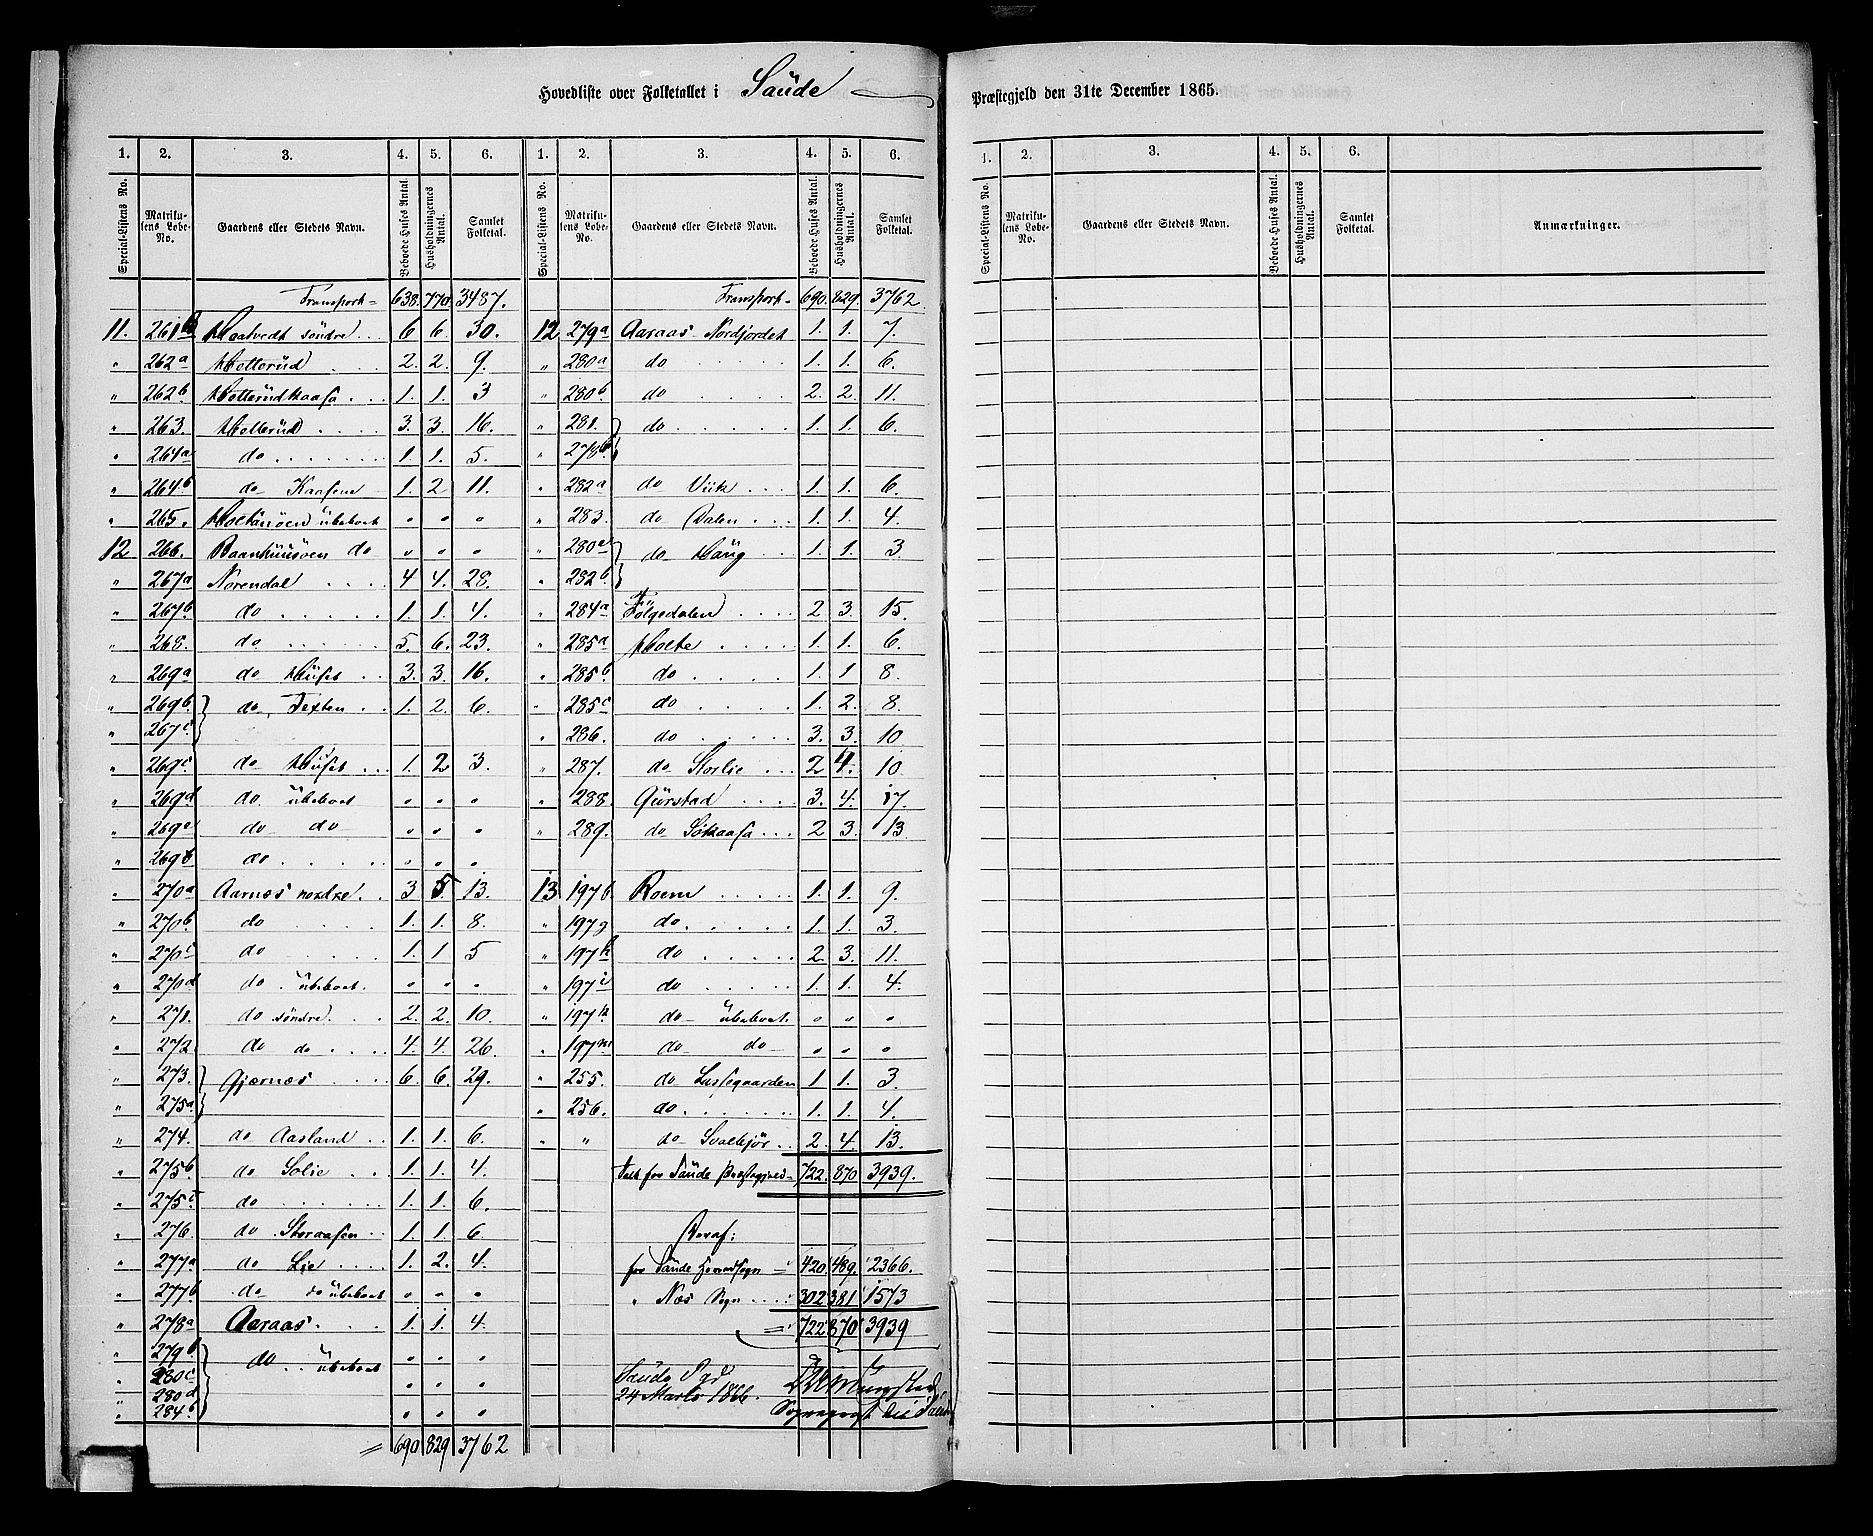 Hovedliste over Folketallet i Saude
Præstegjeld den 31te December 1865.
1. 2. 3. 4. 5. 6. 1. 2. 3. 4. 5. 6.
Special-Listens No. Matrikulens Løbe-No. Gaardens eller Stedets Navn. Beboede Huses Antal. Husholdningernes Antal. Samlet Folketal.
Special-Listens No. Matrikulens Løbe-No. Gaardens eller Stedets Navn. Beboede Huses Antal. Husholdningernes Antal. Samlet Folketal.
Transport- 638. 770. 3487.
11. 261 søndre 6 6. 30.
" 262a Holterud 2. 2. 9.
" 262b Holterudkaasa 1. 1. 3
" 263. Holterud 3. 3. 16.
" 264a do 1. 1. 5.
" 264b do Kaasene 1. 2 11.
" 265. übeboet " " "
12 266. do " " "
" 267a Norendal 4 4. 28.
" 267b do 1. 1. 4.
" 268. do 5. 6. 23.
" 269a do Huset 3. 3. 16.
" 269b. do Texten 1. 2. 6.
" 267c.
" 269c do Huset 1. 2 3.
" 269d do übeboet " " "
" 269e do do " " "
" 269 do " " "
" 270a Aarnæs nordre 3 5. 13.
" 270b do 1. 1. 8.
" 270c do 1. 1 5
" 270d do übeboet. " " "
" 271. do søndre. 2. 2. 10.
" 272 do do 4. 4. 26.
" 273. Gjernæs 6. 6. 29.
" 275a
" 274. do Aasland 1. 1. 6.
" 275b do Solie 1. 1. 4.
" 275c do 1. 1. 6.
" 276. do Storaasen 1. 1. 6
" 277a do Lie 1. 2. 4.
" 277b do do übeboet " " "
" 278a Aaraas. 1. 1. 4.
" 279b do übeboet " " "
" 280c
" 280d " " "
" 284b " " "
= 690 829 3762
Transport- 690. 829. 3762
12 279a Aaraas Nordjordet 1. 1. 7.
" 280a do 1. 1. 6.
" 280b do 2. 2. 11.
" 281. do 1. 1. 6.
" 278b
" 282a do Viik 1. 1. 6.
" 283. do Dalen 1. 1. 4.
" 280 do Haug 1. 1. 3.
" 282b.
" 284a Følgedalen 2 3. 15.
" 285a Holte 1. 1. 6.
" 285b do 1. 1 8.
" 285c do 1. 2. 8.
" 286. do 3. 3. 10
" 287. do Storlie 2 4. 10.
" 288. Gürstad 3. 4. 17.
" 289. do 2 3. 13
13 197b Roem 1. 1. 9.
" 197g do 1. 1. 3.
" 197h do 2 3. 11.
" 197i do 1. 1. 4.
" 197k do übeboet. " " "
" 197m do do " " "
" 255. do 1 1. 3.
" 256. do 1. 1. 4.
" " do 2. 4. 13.
Talt for Saude Præstegjeld- 722. 870 3939.
Heraf:
for Saude Hovedsogn = 420 489. 2366.
" Næs Sogn 302 381 1573
= 722 870 3939
Saude
24 Marts 1866.
1. 2. 3. 4. 5. 6.
Special-Listens No. Matrikulens Løbe-No. Gaardens eller Stedets Navn. Beboede Huses Antal. Husholdningernes Antal. Samlet Folketal. Anmærkninger.